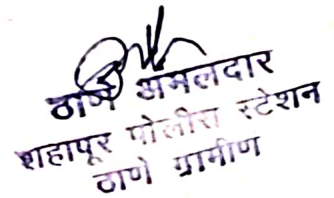 ठाणे अंमलदार
शहापूर पोलीस स्टेशन
ठाणे ग्रामीण